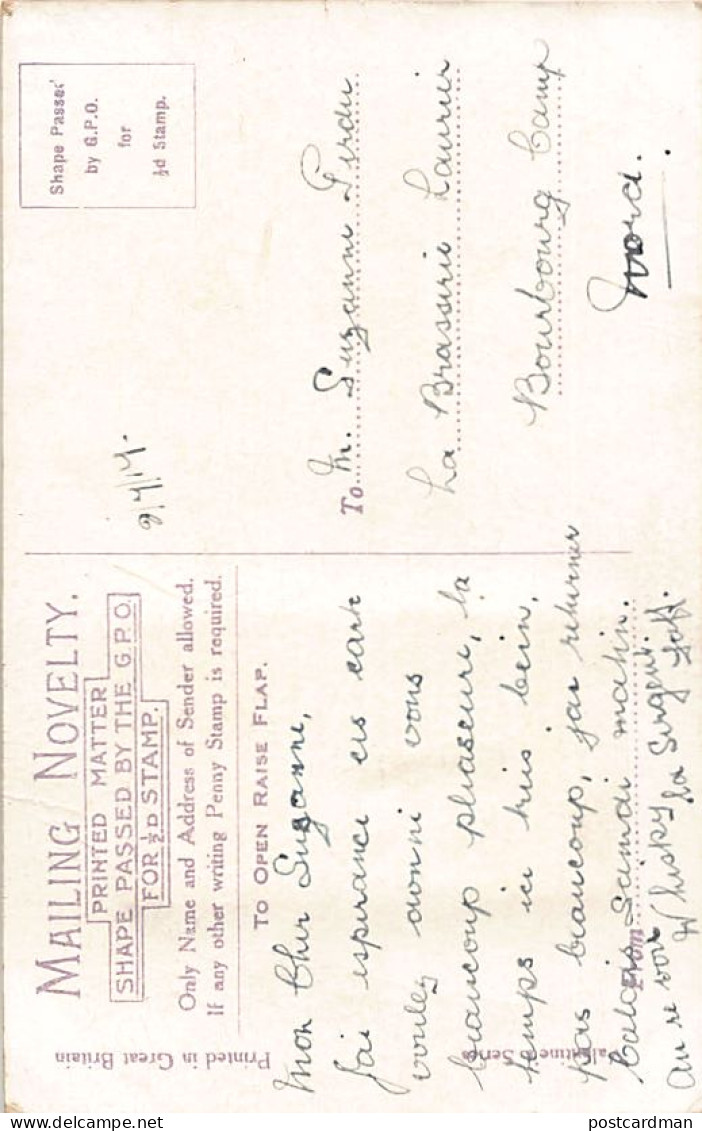 MAILING NOVELTY.
PRINTED MATTER
SHAPE PASSED BY THE G.P.O.
FOR ½D STAMP.
Only Name and Address of Sender allowed.
If any other writing Penny Stamp is required.
TO OPEN RAISE FLAP.
Mon Cher Suzanne,
J'ai esperance ces carte
voulez donni vous
beaucoup pleaseure, la
temps ici tuis bein,
pas beaucoup, jai returner
Calais Samdi matin.
From
au re voir
Whisky
la Sirgent
Printed in Great Britain
Valentine Series
Shape Passed
by G.P.O.
for
½d Stamp.
To M. Suzanne Perdu
La Brasserie Laurier
Bourbourg Camp
Nord.
postcardman